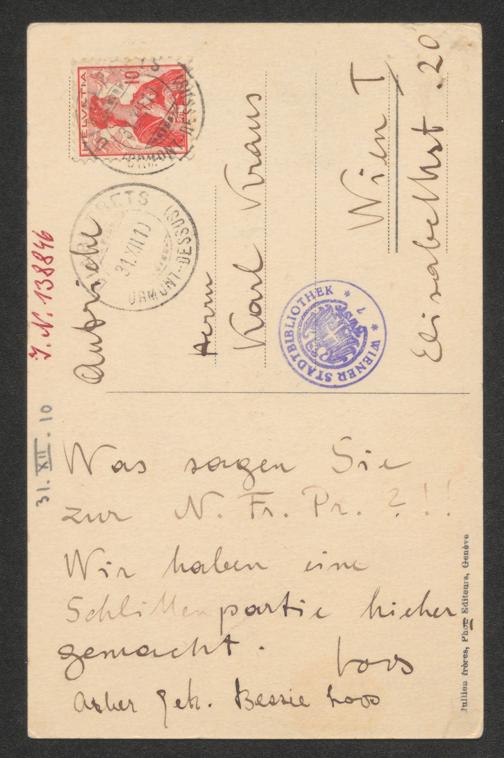 HELVETIA
10
31.XII.10
(ORMONT-DESSOUS)
Autriche
Herrn
Karl Kraus
Wien I
Elisabethst. 20
* WIENER STADTBIBLIOTHEK *
J. N. 138846
31. XII. 10
Was sagen Sie
zur N. Fr. Pr. ?!!
Wir haben eine
Schlittenpartie hieher
gemacht.
Loos
Bessie Loos
Jullien frères, Phot. Editeurs, Genève